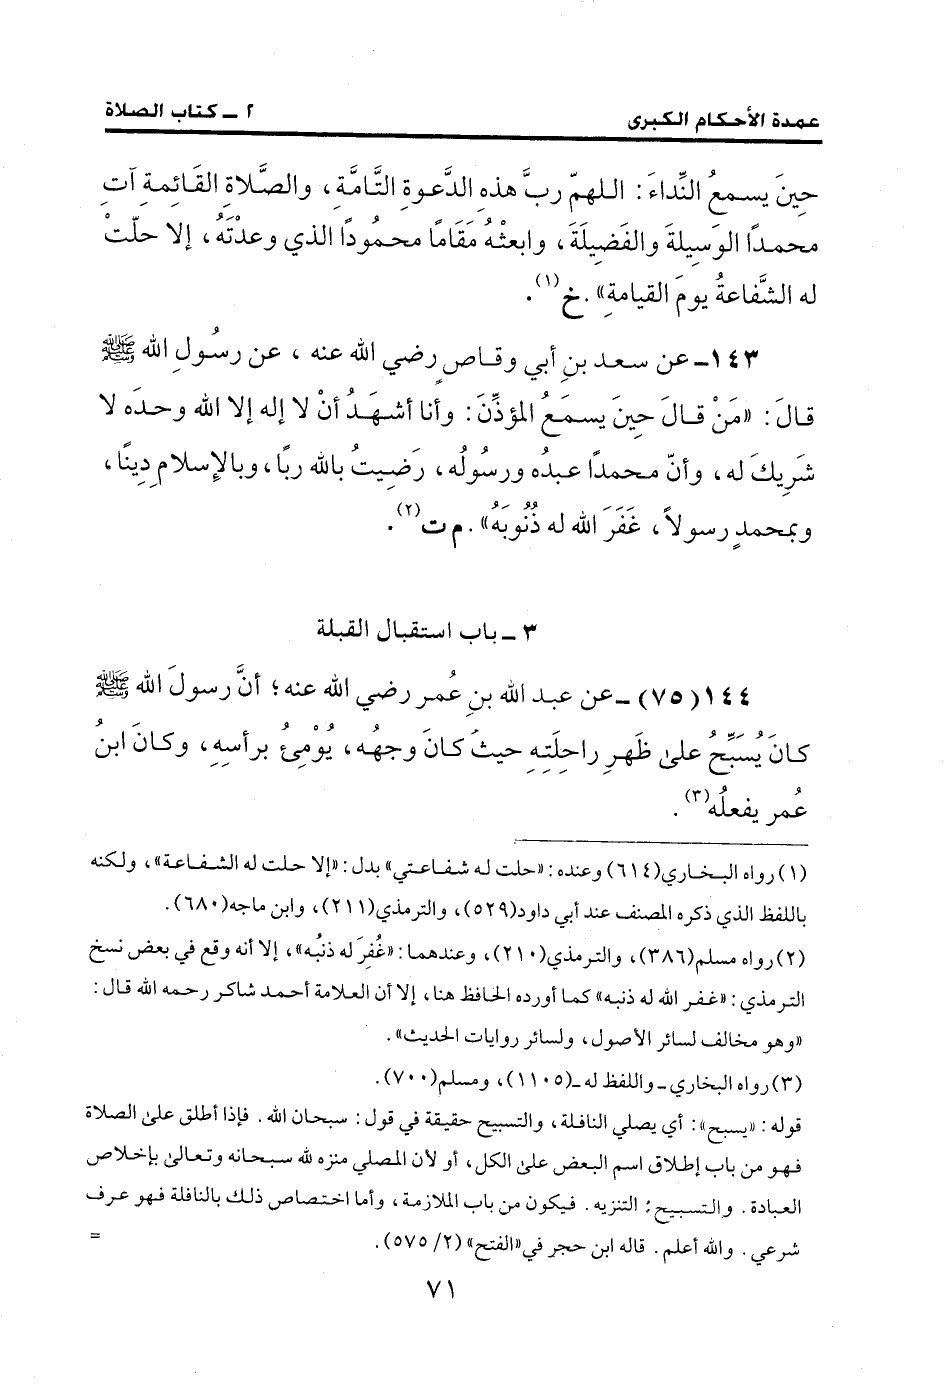 عمدة الأحكام الكبرى ٢ ــ كتاب الصلاة
حينَ يسمعُ النِّداءَ: اللهمّ ربَّ هذه الدَّعوةِ التَّامَّةِ، والصَّلاةِ القَائِمةِ آتِ
محمدًا الوَسِيلةَ والفَضِيلَةَ، وابعثْهُ مَقَامًا محمُودًا الذي وعدْتَهُ، إلا حلّتْ
له الشَّفاعةُ يومَ القيامةِ» . خ(١).
١٤٣ــ عن سعد بنِ أبي وقاصٍ رضي الله عنه ، عن رسُولِ الله ﷺ
قالَ: «مَنْ قالَ حينَ يسمَعُ المؤذِّنَ: وأنا أشهَدُ أنْ لا إله إلا الله وحدَه لا
شَرِيكَ له، وأنّ محمدًا عبدُه ورسُولُه، رَضِيتُ بالله ربًّا، وبالإسلامِ دِينًا،
وبمحمدٍ رسولاً، غَفَرَ الله له ذُنُوبَهُ» . م ت(٢).
٣ ــ باب استقبال القبلة
١٤٤(٧٥) ــ عن عبد الله بنِ عُمر رضي الله عنه؛ أنَّ رسولَ الله ﷺ
كانَ يُسَبِّحُ علىٰ ظَهرِ راحلَتِهِ حيثُ كانَ وجهُه، يُوْمِئُ برأسِهِ، وكانَ ابنُ
عُمر يفعلُه(٣).
(١) رواه البخاري(٦١٤) وعنده: «حلت له شفاعتي» بدل: «إلا حلت له الشفاعة»، ولكنه
باللفظ الذي ذكره المصنف عند أبي داود(٥٢٩)، والترمذي(٢١١)، وابن ماجه(٦٨٠).
(٢) رواه مسلم(٣٨٦)، والترمذي(٢١٠)، وعندهما: «غُفرَ له ذنبُه»، إلا أنه وقع في بعض نسخ
الترمذي: «غفر الله له ذنبه» كما أورده الحافظ هنا، إلا أن العلامة أحمد شاكر رحمه الله قال:
«وهو مخالف لسائر الأصول، ولسائر روايات الحديث».
(٣) رواه البخاري ــ واللفظ له ــ (١١٠٥)، ومسلم(٧٠٠).
قوله: «يسبح»: أي يصلي النافلة، والتسبيح حقيقة في قول: سبحان الله. فإذا أطلق علىٰ الصلاة
فهو من باب إطلاق اسم البعض علىٰ الكل، أو لأن المصلي منزه لله سبحانه وتعالىٰ بإخلاص
العبادة. والتسبيح: التنزيه. فيكون من باب الملازمة، وأما اختصاص ذلك بالنافلة فهو عرف
شرعي. والله أعلم. قاله ابن حجر في «الفتح» (٢/ ٥٧٥). =
٧١